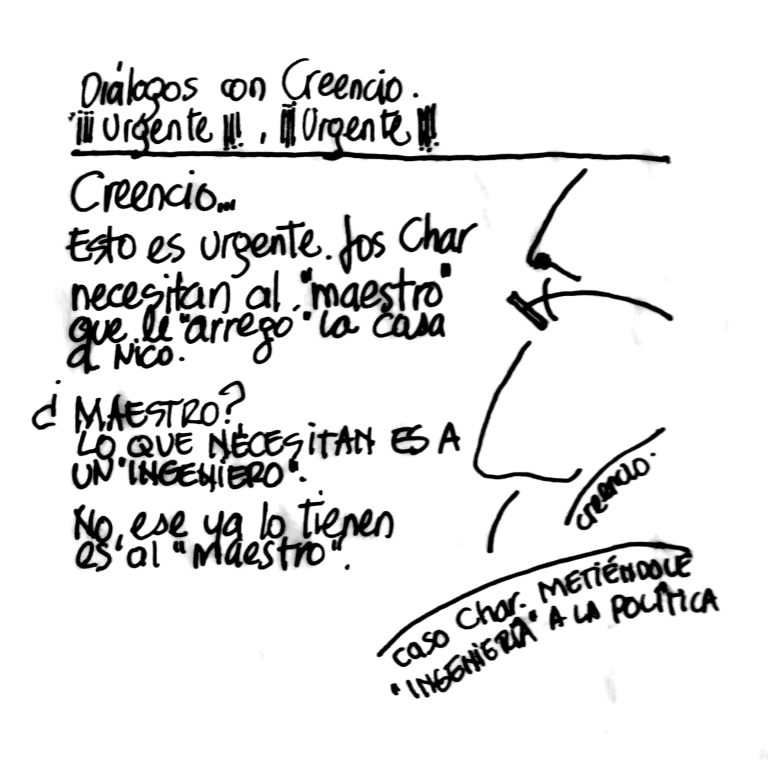 Diálogos con Creencio.
¡¡¡Urgente!!!, ¡¡¡Urgente!!!
Creencio...
Esto es urgente. Los Char
necesitan al "maestro"
que le "arrego" la casa
a Nico.
¿MAESTRO?
LO QUE NECESITAN ES A
UN "INGENIERO".
No, ese ya lo tienen
es al "maestro".
CREENCIO.
CASO Char. METIÉNDOLE
"INGENIERÍA" A LA POLÍTICA